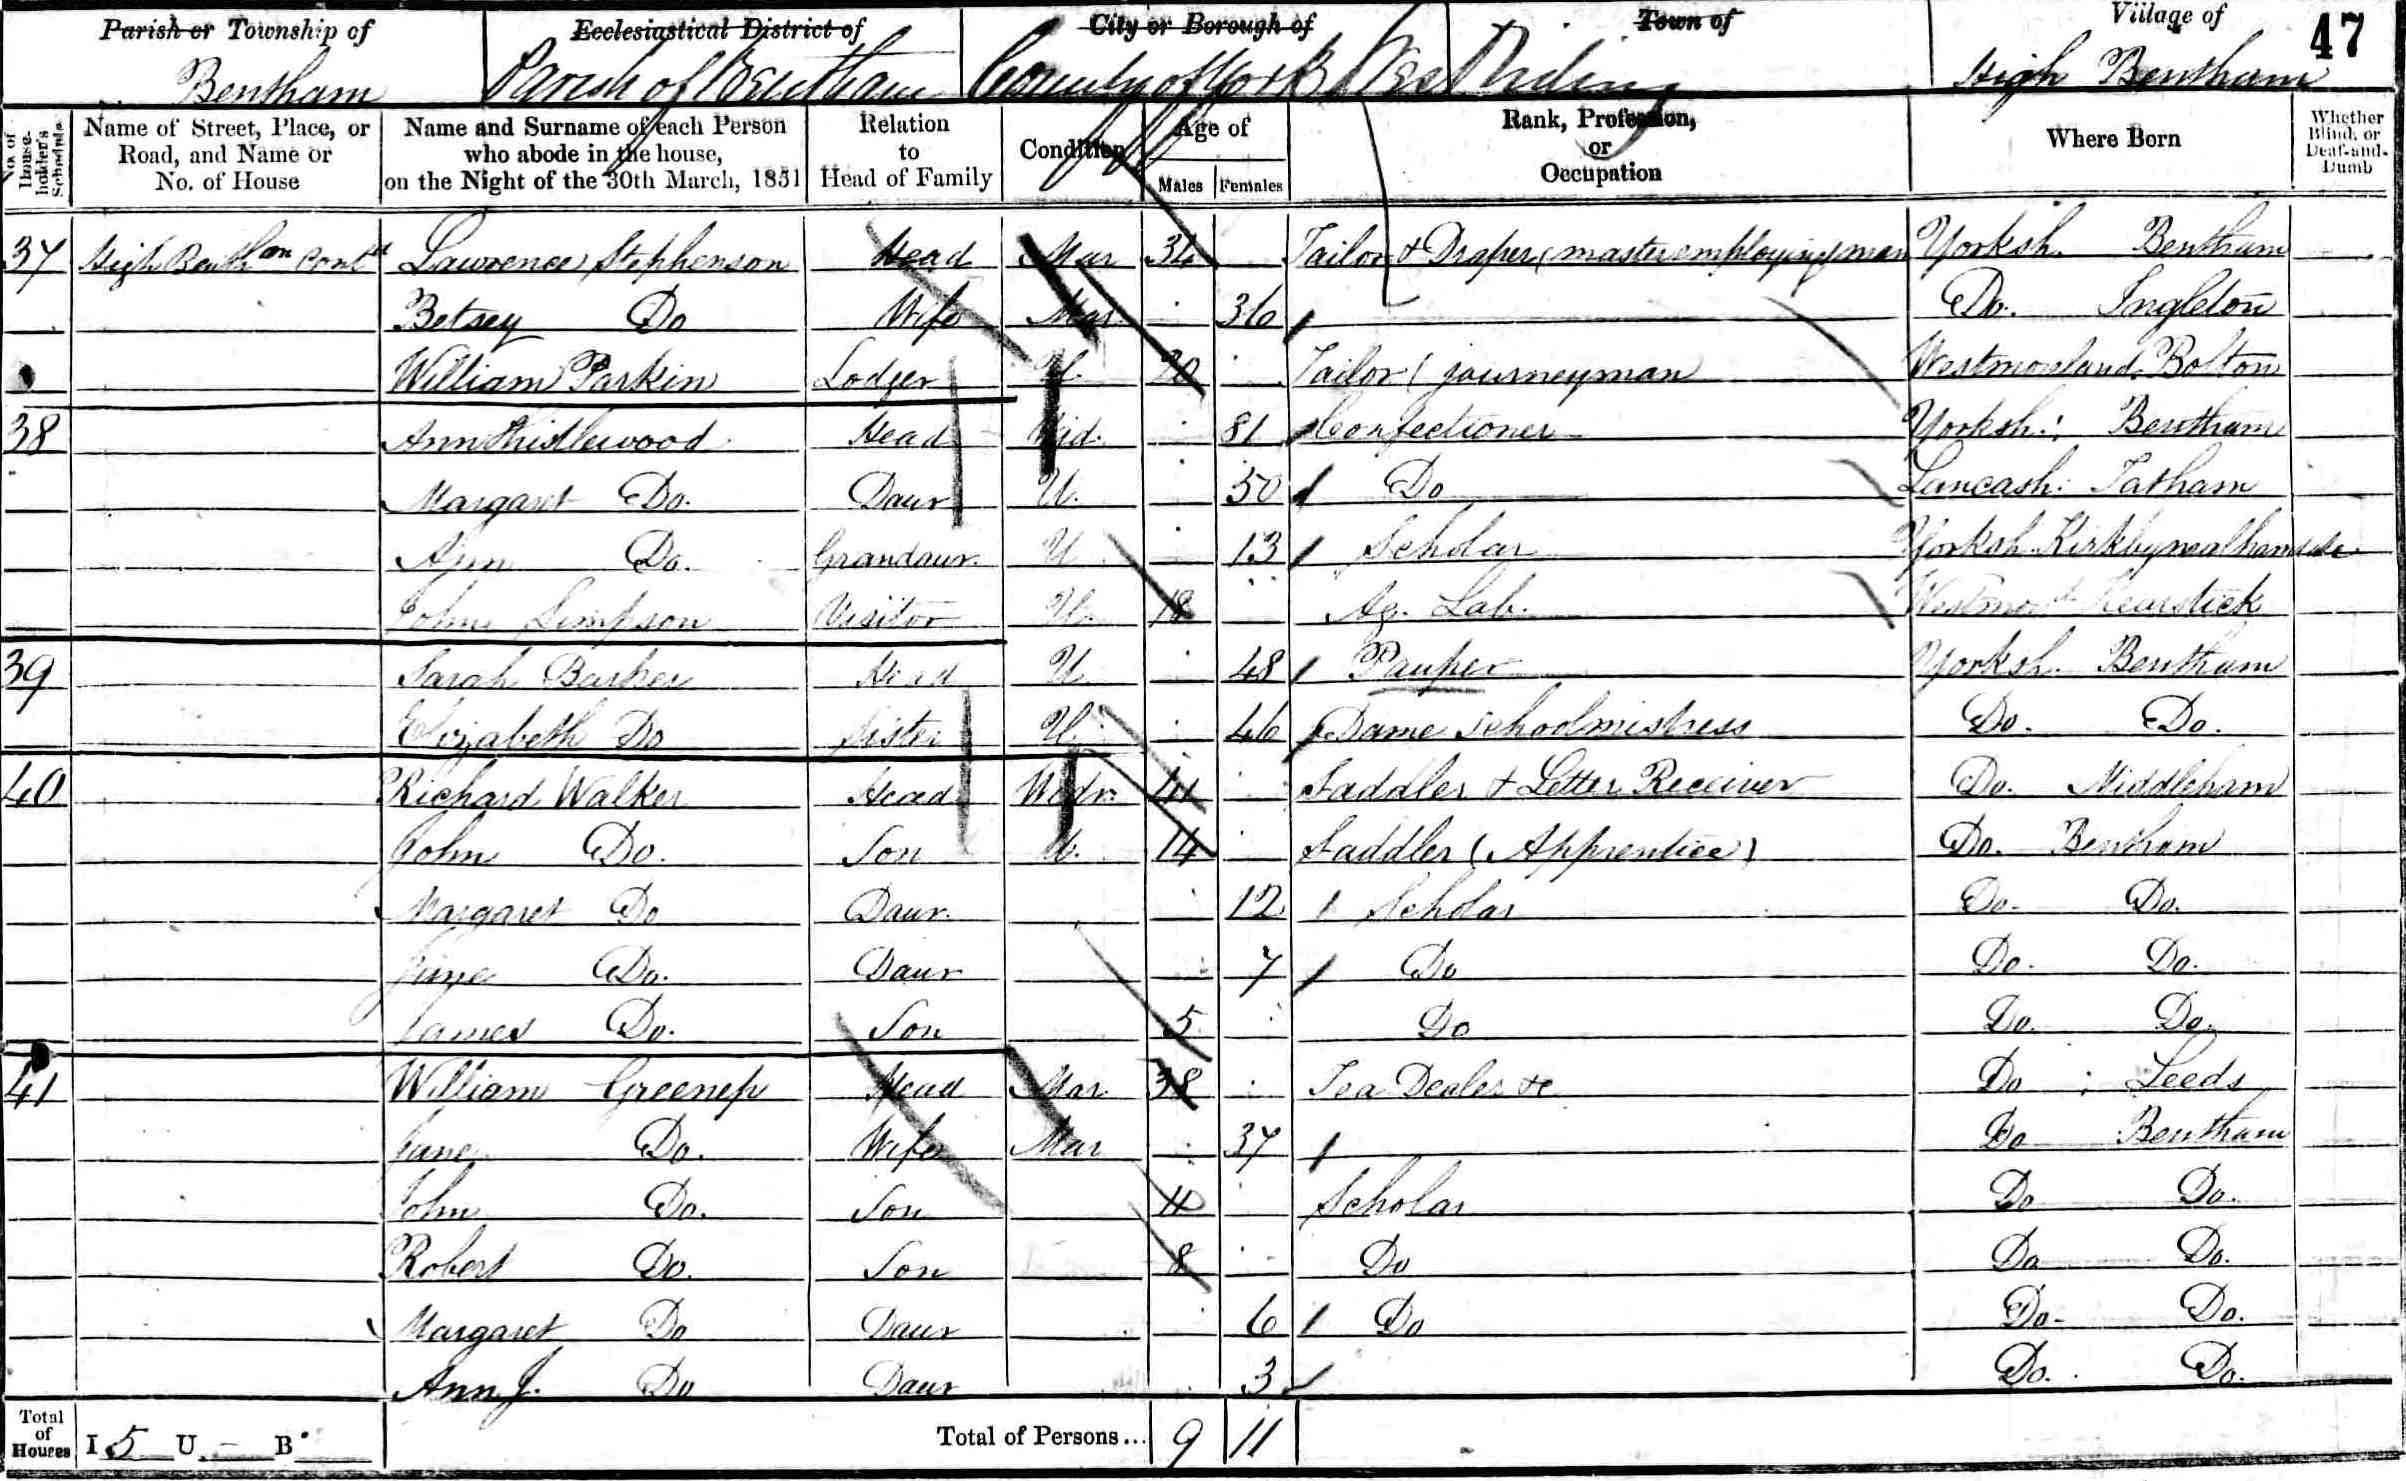 Parish or Township of Ecclesiastical District of City or Borough of Town of Village of 47
Bentham Parish of Bentham County of York West Riding High Bentham
No. of House-holder's Schedule Name of Street, Place, or Road, and Name or No. of House Name and Surname of each Person who abode in the house, on the Night of the 30th March, 1851 Relation to Head of Family Condition Age of Males Females Rank, Profession, or Occupation Where Born Whether Blind, or Deaf-and-Dumb
37 High Bentham Contd Lawrence Stephenson Head Mar 36 Tailor & Draper (master employing 1 man Yorksh. Bentham
Betsey Do Wife Mar. 36 Do. Ingleton
William Parkin Lodger U. 20 Tailor (journeyman Westmorland Bolton
38 Ann Thistlewood Head Wid. 81 Confectioner Yorksh. Bentham
Margaret Do. Daur U. 50 Do Lancash. Tatham
Ann Do. Grandaur. U 13 Scholar Yorksh.
John Simpson Visitor U. 18 Ag. Lab. Westmord Kearstick
39 Sarah Barker Head U 48 Pauper Yorksh. Bentham
Elizabeth Do Sister U. 46 Dame Schoolmistress Do. Do.
40 Richard Walker Head Widr. 41 Saddler & Letter Receiver Do. Middleham
John Do. Son U. 14 Saddler (Apprentice) Do. Bentham
Margaret Do Daur. 12 Scholar Do. Do.
Jane Do. Daur 7 Do Do. Do.
James Do. Son 5 Do Do. Do.
41 William Greenep Head Mar. 38 Tea Dealer &c Do Leeds
Jane Do. Wife Mar 37 Do Bentham
John Do. Son 11 Scholar Do Do.
Robert Do. Son 8 Do Do Do.
Margaret Do Daur 6 Do Do. Do.
Ann J. Do Daur 3 Do. Do.
Total of Houses I 5 U - B Total of Persons... 9 11